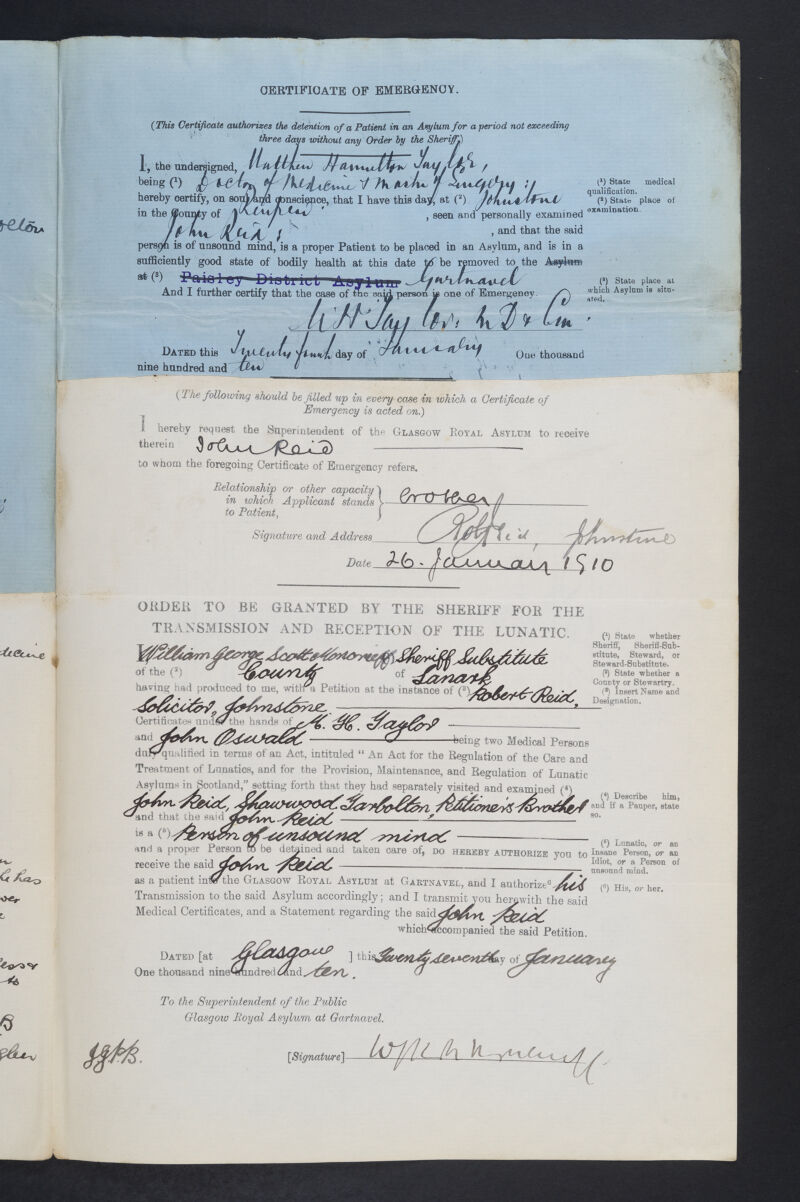 CERTIFICATE OF EMERGENCY.
(This Certificate authorizes the detention of a Patient in an Asylum for a period not exceeding
three days without any Order by the Sheriff.)
I, the undersigned, Matthew Hamilton Taylor,
being (1) Doctor of Medicine & Master of Surgery:
hereby certify, on soul and conscience, that I have this day, at (2) Johnstone
in the County of Renfrew, seen and personally examined
John Reid:, and that the said
person is of unsound mind, is a proper Patient to be placed in an Asylum, and is in a
sufficiently good state of bodily health at this date to be removed to the Asylum
at (3) Paisley District Asylum Gartnavel
And I further certify that the case of the said person is one of Emergency.
M H Taylor: M D & Cm.
DATED this Twenty fourth day of January One thousand
nine hundred and ten
(1) State medical
qualification.
(2) State place of
examination.
(3) State place at
which Asylum is situ-
ated.
(The following should be filled up in every case in which a Certificate of
Emergency is acted on.)
I hereby request the Superintendent of the GLASGOW ROYAL ASYLUM to receive
therein John Reid
to whom the foregoing Certificate of Emergency refers.
Relationship or other capacity
in which Applicant stands
to Patient, brother
Signature and Address Robt Reid, Johnstone
Date 26. January 1910
ORDER TO BE GRANTED BY THE SHERIFF FOR THE
TRANSMISSION AND RECEPTION OF THE LUNATIC.
I William George Scott Moncrieff Sheriff Substitute
of the (2) County of Lanark
having had produced to me, with a Petition at the instance of (3) Robert Reid,
Solicitor, Johnstone
Certificates under the hands of M. H. Taylor
and John Oswald being two Medical Persons
duly qualified in terms of an Act, intituled "An Act for the Regulation of the Care and
Treatment of Lunatics, and for the Provision, Maintenance, and Regulation of Lunatic
Asylums in Scotland," setting forth that they had separately visited and examined (4)
John Reid, Shawwood Tarbolton, Petitioner's Brother
and that the said John Reid
is a (5) Person of unsound mind
and a proper Person to be detained and taken care of, DO HEREBY AUTHORIZE you to
receive the said John Reid
as a patient into the GLASGOW ROYAL ASYLUM at GARTNAVEL, and I authorize (6) his
Transmission to the said Asylum accordingly; and I transmit you herewith the said
Medical Certificates, and a Statement regarding the said John Reid
which accompanied the said Petition.
DATED [at Glasgow ] this Twenty seventh day of January
One thousand nine hundred and ten.
(1) State whether
Sheriff, Sheriff-Sub-
stitute, Steward, or
Steward-Substitute.
(2) State whether a
County or Stewartry.
(3) Insert Name and
Designation.
(4) Describe him,
and if a Pauper, state
so.
(5) Lunatic, or an
Insane Person, or an
Idiot, or a Person of
unsound mind.
(6) His, or her.
To the Superintendent of the Public
Glasgow Royal Asylum at Gartnavel.
[Signature]